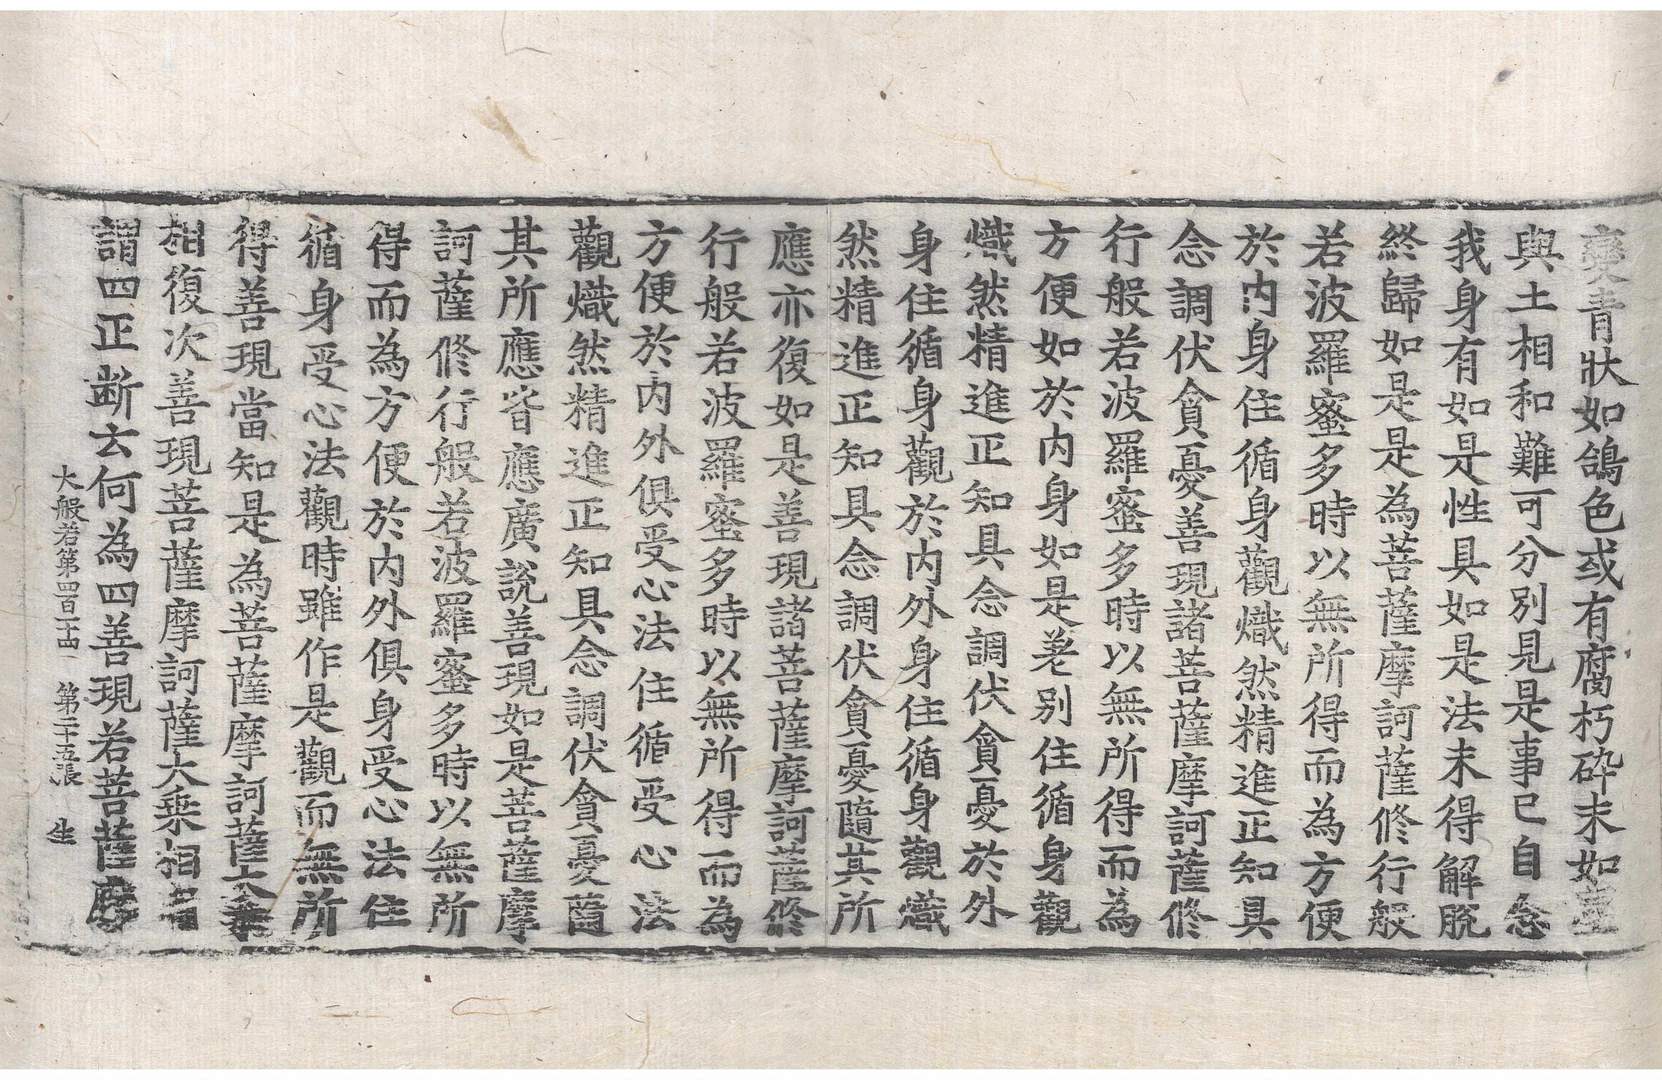 變青狀如鴿色或有腐朽碎末如塵
與土相和難可分別見是事已自念
我身有如是性具如是法未得解脫
終歸如是是為菩薩摩訶薩修行般
若波羅蜜多時以無所得而為方便
於內身住循身觀熾然精進正知具
念調伏貪憂善現諸菩薩摩訶薩修
行般若波羅蜜多時以無所得而為
方便如於內身如是差別住循身觀
熾然精進正知具念調伏貪憂於外
身住循身觀於內外身住循身觀熾
然精進正知具念調伏貪憂隨其所
應亦復如是善現諸菩薩摩訶薩修
行般若波羅蜜多時以無所得而為
方便於內外俱受心法住循受心法
觀熾然精進正知具念調伏貪憂隨
其所應皆應廣說善現如是菩薩摩
訶薩修行般若波羅蜜多時以無所
得而為方便於內外俱身受心法住
循身受心法觀時雖作是觀而無所
得善現當知是為菩薩摩訶薩大乘
相復次善現菩薩摩訶薩大乘相者
謂四正断云何為四善現若菩薩摩
大般若第四百十四 第二十五張 生